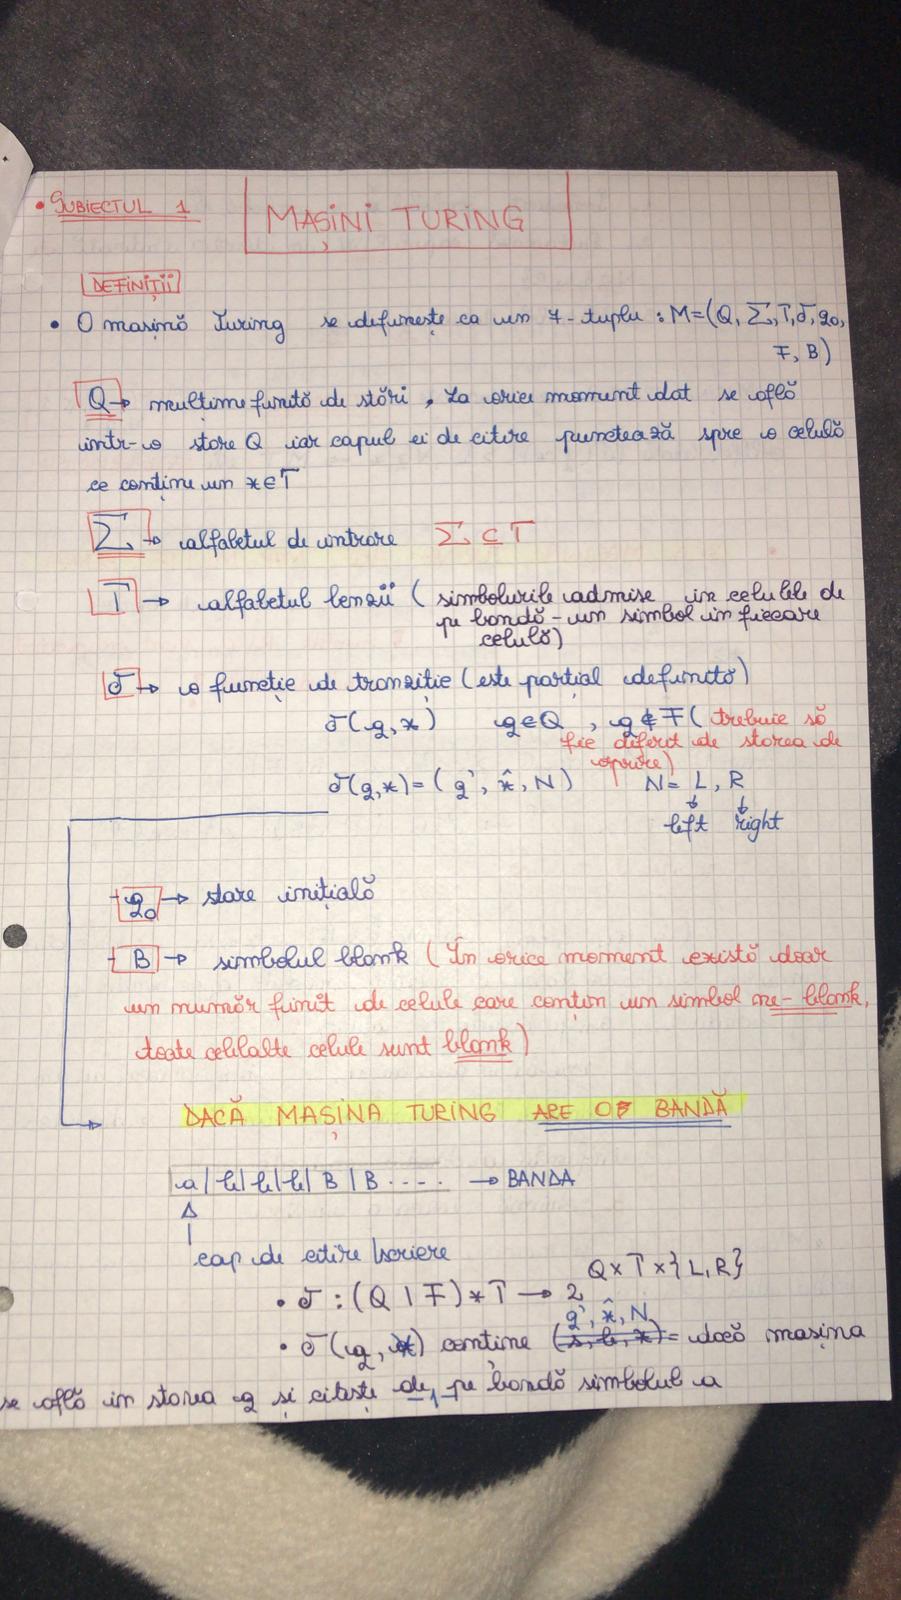 • SUBIECTUL 1
MAȘINI TURING
DEFINIȚII
• O mașină Turing se definește ca un 7-tuplu : M=(Q, Σ, T, δ, q0,
F, B)
Q → mulțime finită de stări, La orice moment dat se află
într-o stare Q iar capul ei de citire punctează spre o celulă
ce conține un x∈T
Σ → alfabetul de intrare Σ ⊆ T
T → alfabetul benzii (simbolurile admise in celulele de
pe bandă - un simbol in fiecare
celulă)
δ → o funcție de tranziție (este parțial definită)
δ(q,x) q∈Q , q∉F ( trebuie să
fie diferit de starea de
oprire)
δ(q,x)=(q', x̂, N) N= L, R
left right
q0 → stare inițială
B → simbolul blank (În orice moment există doar
un număr finit de celule care conțin un simbol ne-blank,
toate celelalte celule sunt blank)
DACĂ MAȘINA TURING ARE O BANDĂ
a|b|b|b|B|B.... → BANDA
cap de citire/scriere
Q×T×{L,R}
• δ : (Q \ F)*T → 2
q', x̂, N
• δ(q, x) conține (s, b, x) = dacă mașina
se află in starea q și citește de pe bandă simbolul a
-1-